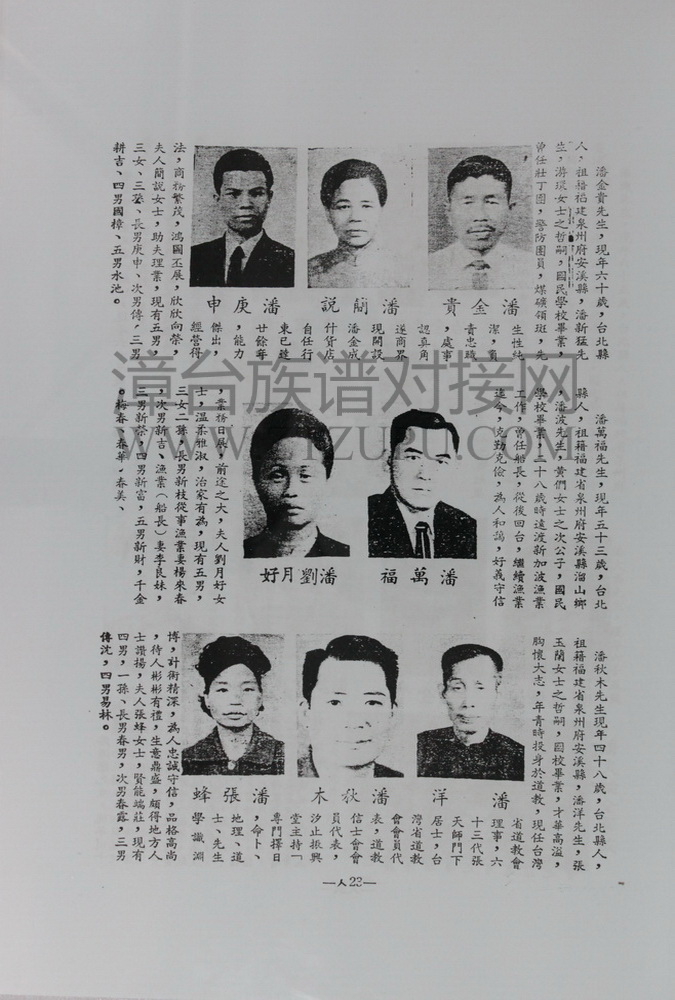 潘金貴先生，現年六十歲，台北縣
人，祖籍福建泉州府安溪縣，潘新猛先
生，游琛女士之哲嗣，國民學校畢業，
曾任壯丁團，警防團員，煤礦領班，先
生性純
潔，負
責忠職
，處事
認真角
逐商界
現開設
潘金成
什貨店
自任行
東已達
廿餘每
，能力
傑出，
經營得
法，商務繁茂，鴻圖丕展，欣欣向榮，
夫人簡說女士，助夫理業，現有五男，
三女、三孫、長男庚申、次男傳、三男
耕吉、四男國樟、五男水池。
潘金貴
潘簡說
潘庚申
潘萬福先生，現年五十三歲，台北
縣人，祖籍福建省泉州府安溪縣湖山鄉
，潘波先生，黃們女士之次公子，國民
學校畢業，二十八歲時遠渡新加波漁業
工作，曾任船長，從後回台，繼續漁業
迄今，克勤克儉，為人和藹，好義守信
，業務日展，前途之大，夫人劉月好女
士，溫柔雅淑，治家有為，現有五男，
三女二孫，長男新枝從事漁業妻楊來春
，次男新吉、漁業（船長）妻李良妹，
三男新榮，四男新富，五男新財，千金
梅春、春華、春美、。
潘萬福
潘劉月好
潘秋木先生現年四十八歲，台北縣人，
祖籍福建省泉州府安溪縣，潘洋先生，張
玉蘭女士之哲嗣，國校畢業，才華高溢，
胸懷大志，年青時投身於道教，現任台灣
省道教會
理事，六
十三代張
天師門下
居士，台
灣省道教
會會員代
表，道教
信士會會
員代表，
汐止振興
堂主持「
專門擇日
，命卜、
地理、道
士、先生
學識淵
博，計術精深，為人忠誠守信，品格高尚
，待人彬彬有禮，生意鼎盛，頗得地方人
士讚揚，夫人張蜂女士，賢能端莊，現有
四男，一孫、長男春男，次男春露，三男
傳沈，四男易林。
潘洋
潘秋木
潘張蜂
—人23—
漳台族谱对接网
WWW.ZTZUPU.COM